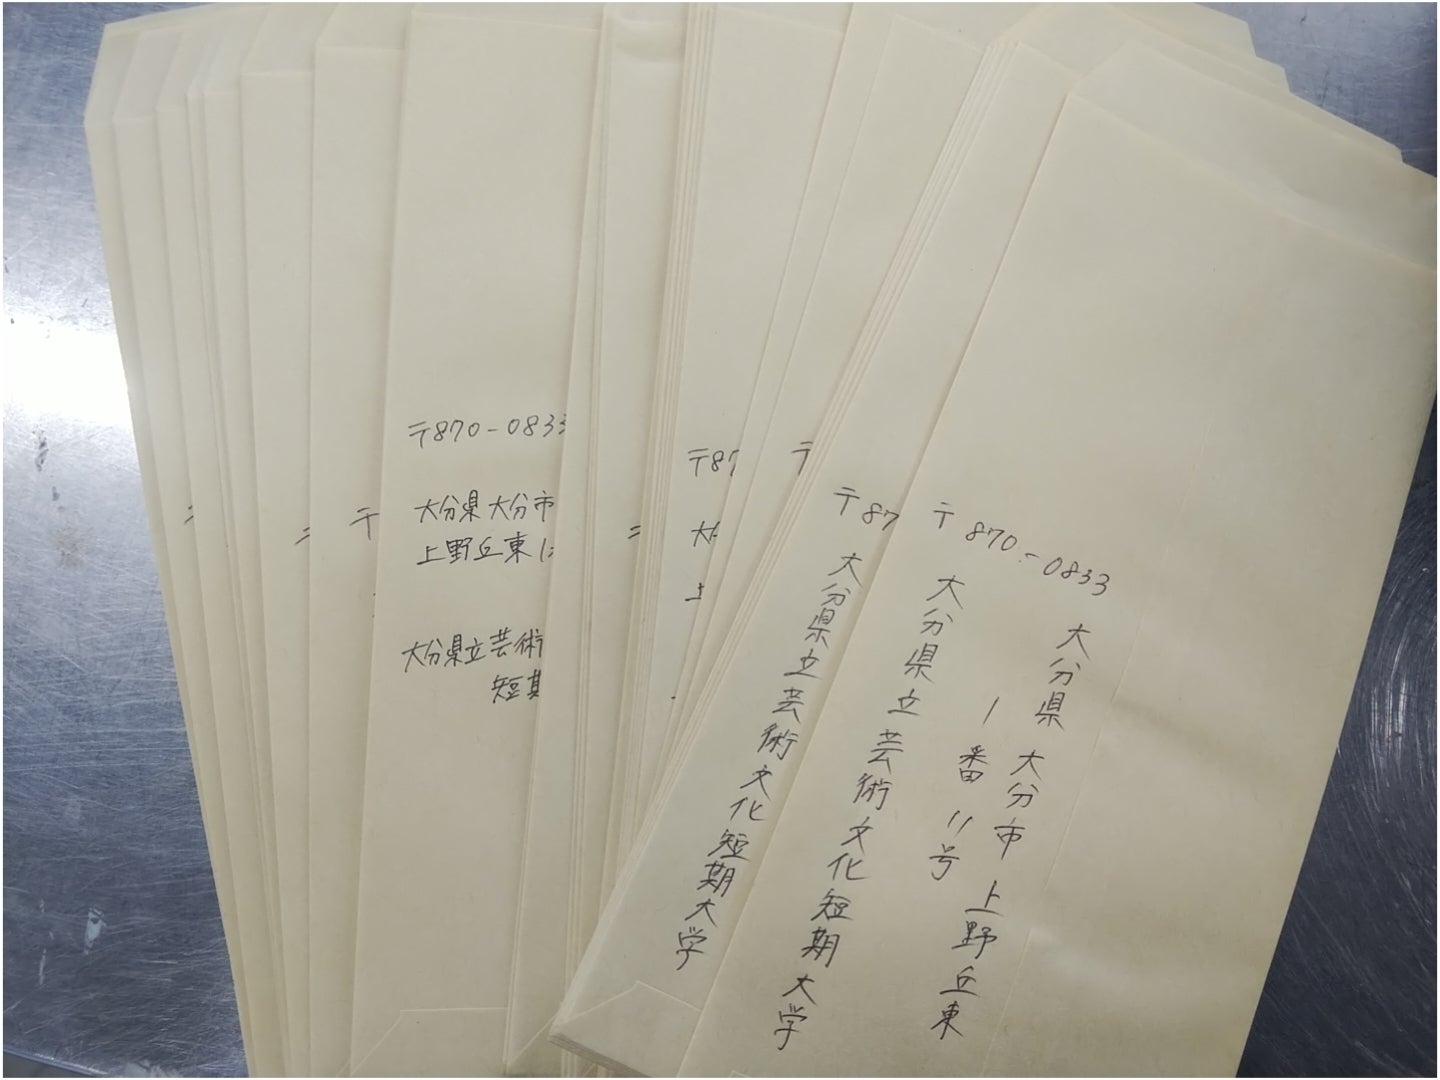 〒870-0833
大分県大分市
上野丘東1
大分県立芸術
短期
〒87
大
上
〒
〒
〒87
大分県立芸術文化短期大学
〒870-0833
大分県 大分市 上野丘東
1番11号
大分県立芸術文化短期大学